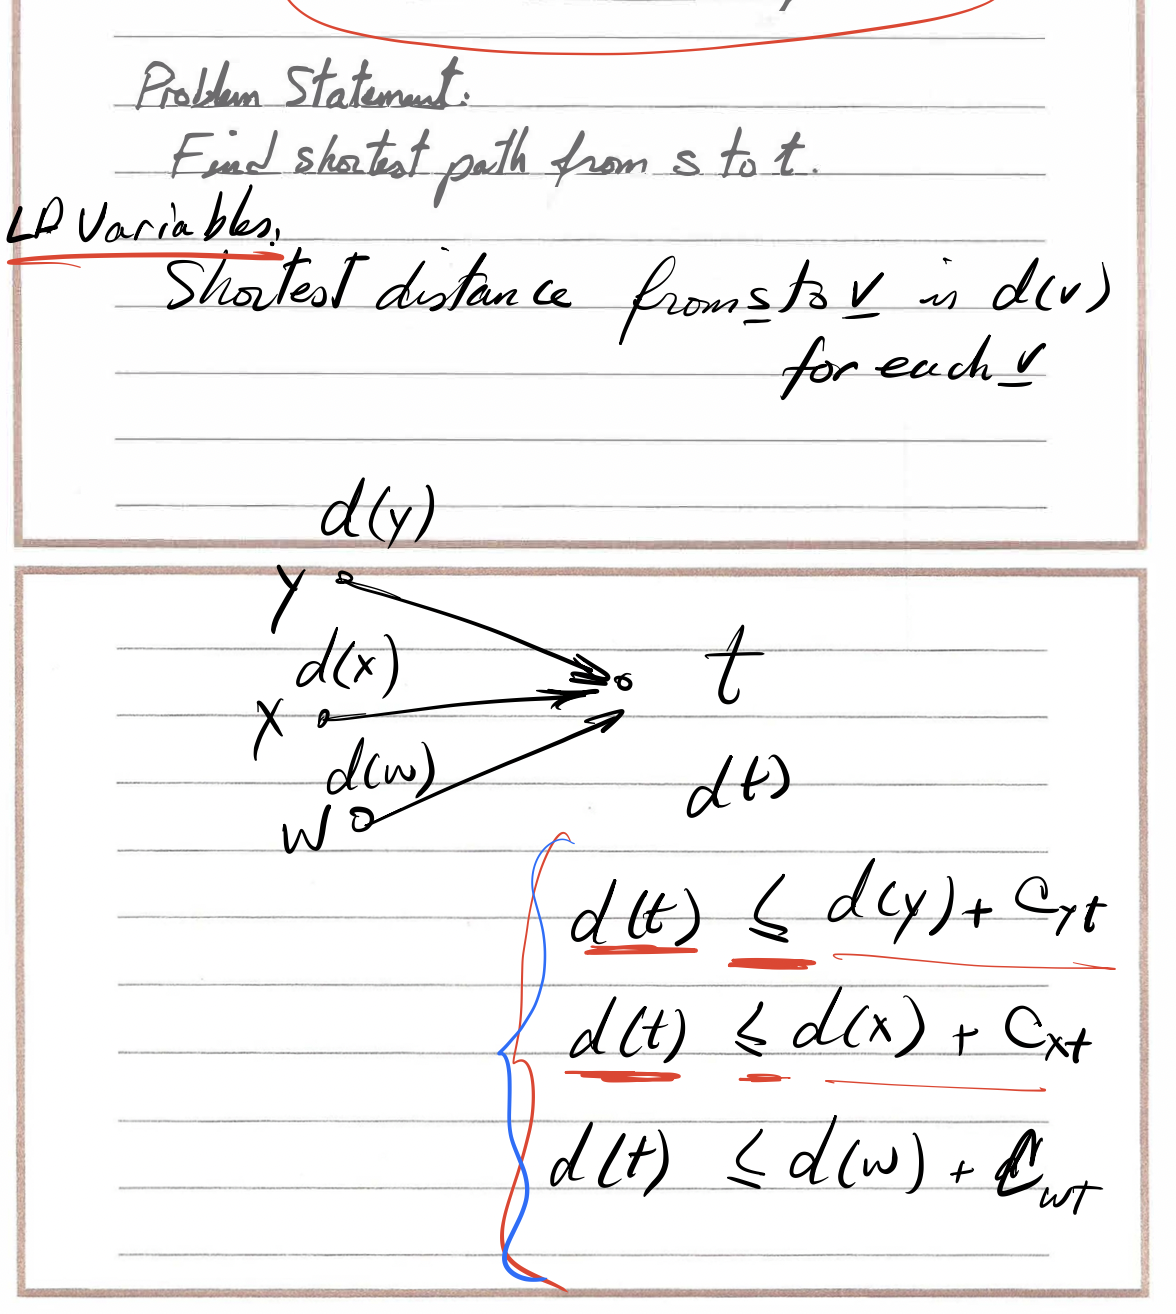 Problem Statement:
Find shortest path from s to t.
LP Variables:
Shortest distance from s to v is d(v)
for each v
d(y)
y
d(x)
t
x
d(w)
d(t)
w
d(t) ≤ d(y) + Cyt
d(t) ≤ d(x) + Cxt
d(t) ≤ d(w) + Cwt